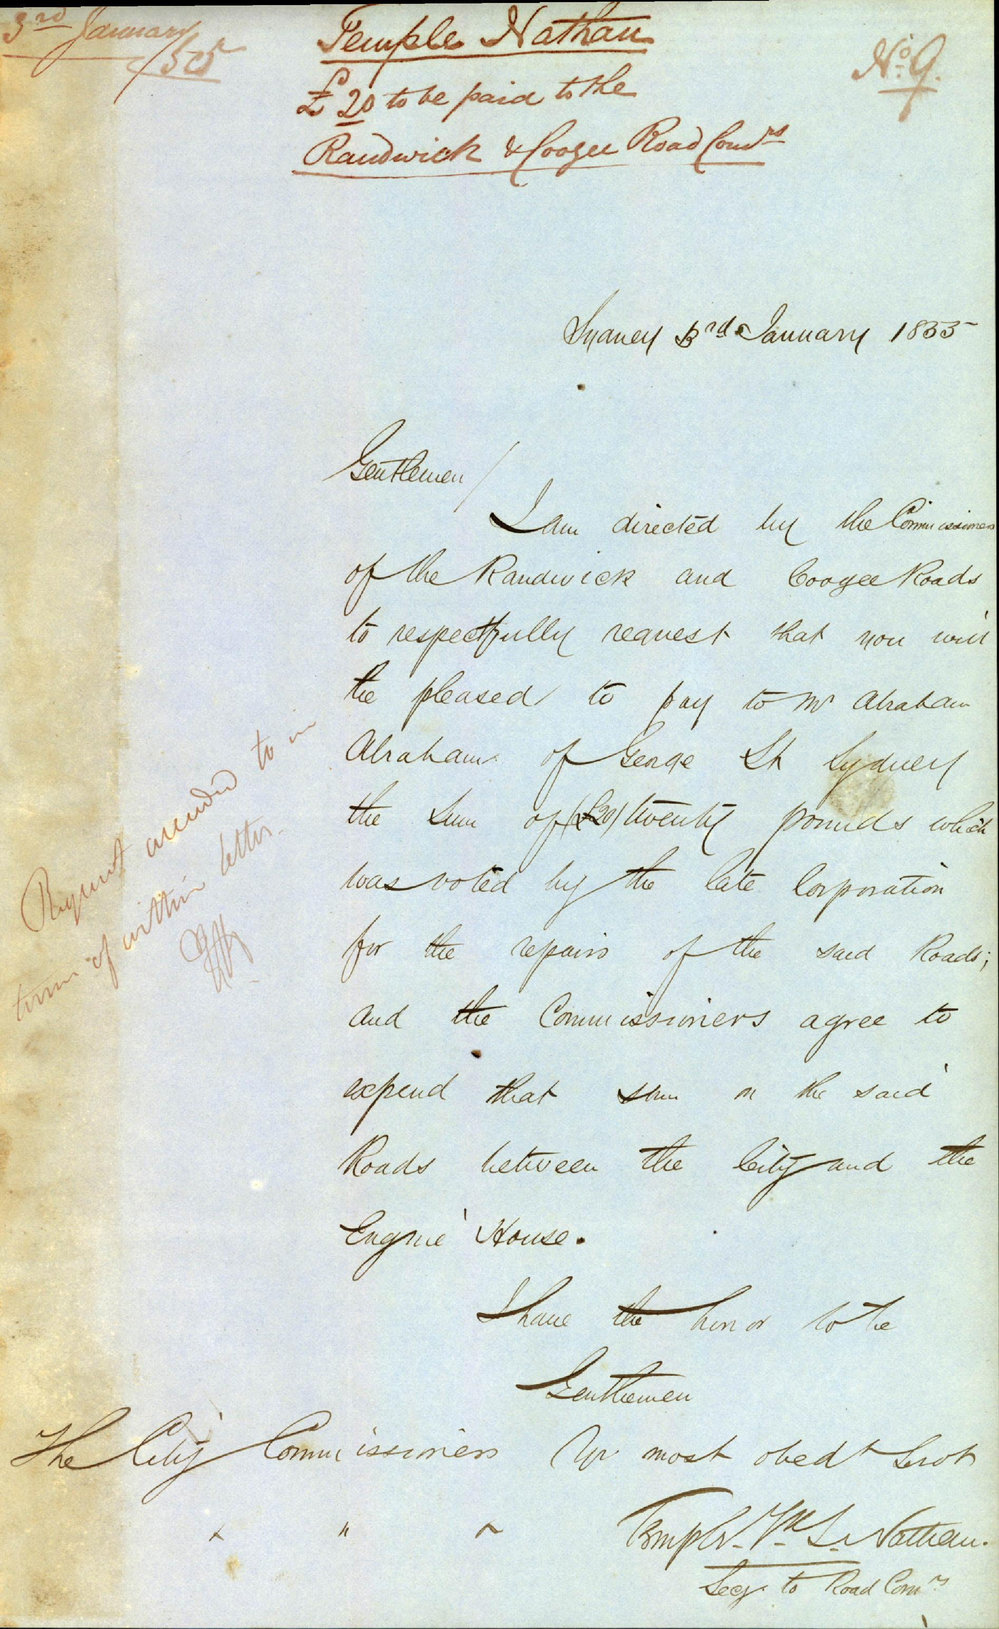 3rd January
/55
Temple Nathan
£20 to be paid to the
Randwick & Coogee Road Comrs
No. 9.
Sydney 3rd January 1855
Gentlemen/
I am directed by the Commissioners
of the Randwick and Coogee Roads
to respectfully request that you will
be pleased to pay to Mr Abraham
Abrahams of George St Sydney
the sum of (£20) twenty pounds which
was voted by the late Corporation
for the repairs of the said Roads;
and the Commissioners agree to
expend that sum on the said
Roads between the City and the
Engine House.
I have the honor to be
Gentlemen
Yr most obedt Servt
Temple Nathan.
Secy. to Road Comrs
The City Commissioners
" " "
Request acceded to in
terms of within letter.